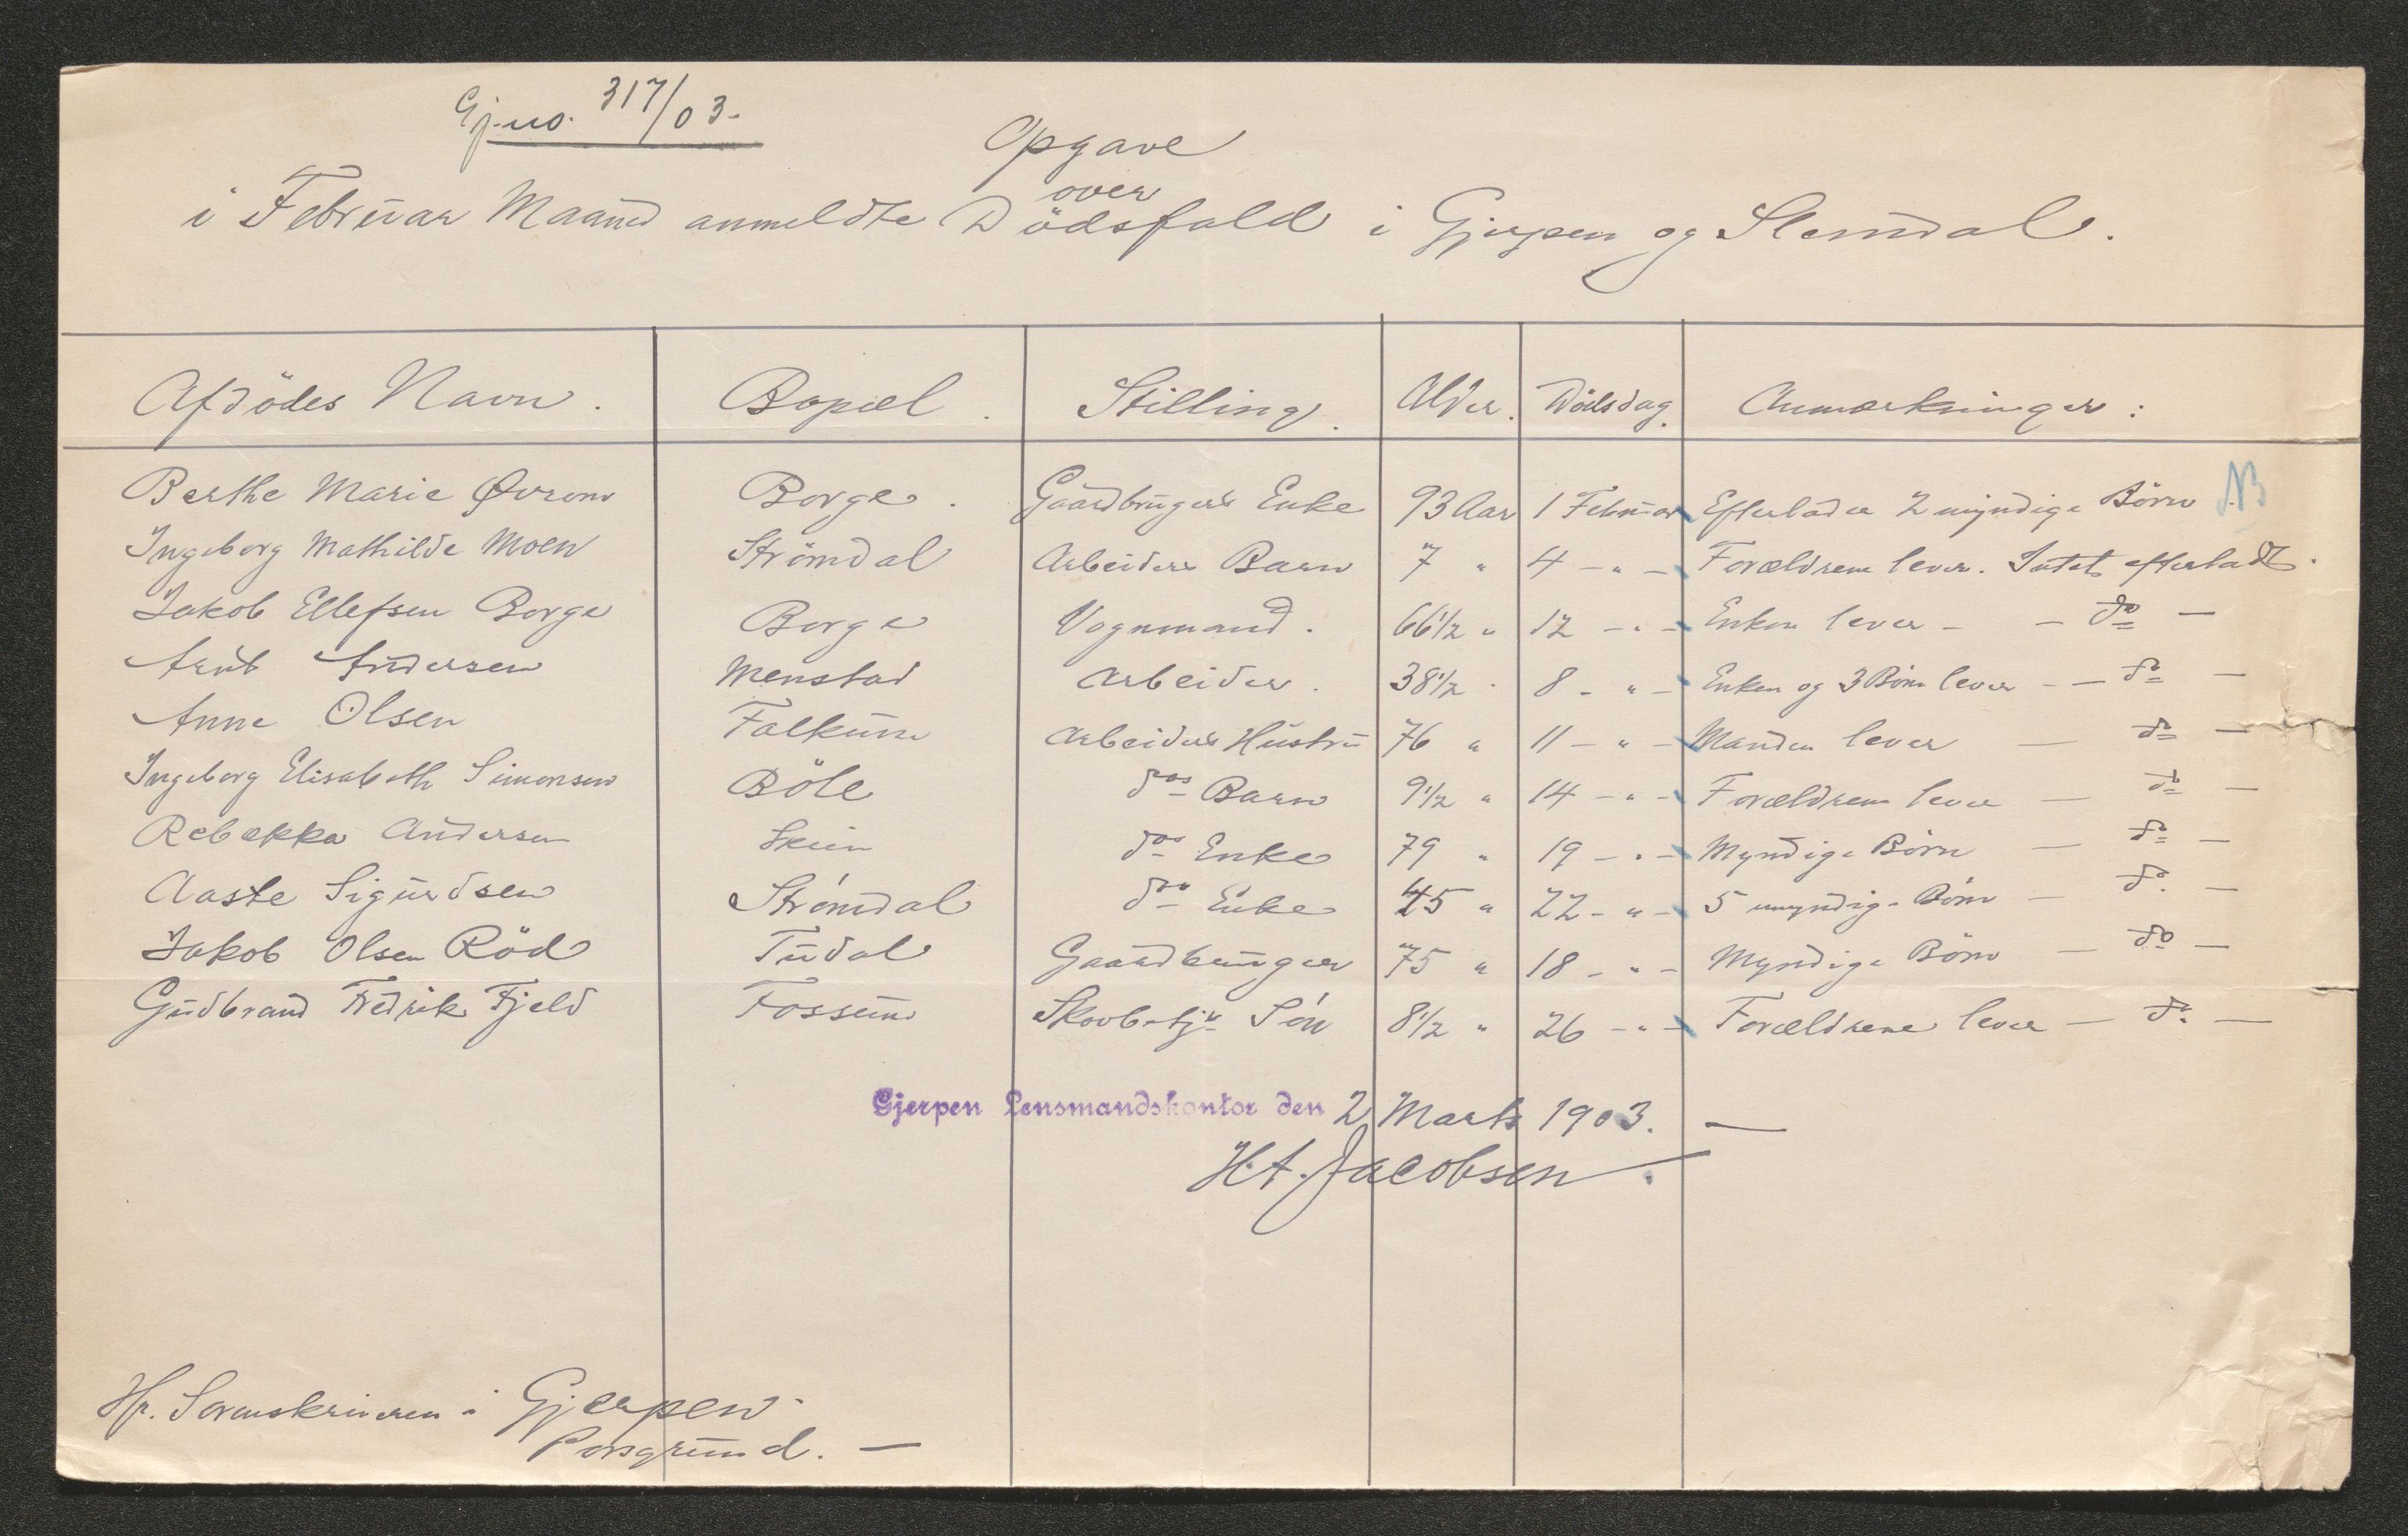 Gj.no. 317/03.
Opgave
over
i Februar Maaned anmeldte Dödsfald i Gjerpen og Slemdal.
Afdödes Navn. Bopæl. Stilling. Alder. Dödsdag. Anmærkninger:
Berthe Marie Øvrum Borge. Gaardbrugers Enke 93 Aar 1 Februar Efterlader 2 myndige Börn NB
Ingeborg Mathilde Moen Strömdal Arbeiders Barn 7 " 4 - " - Forældrene lever. Intet efterladt.
Jakob Ellefsen Borge Borge Vognmand. 66 1/2 " 12 - " - Enken lever - - do -
Arnt Andersen Menstad Arbeider. 38 1/2 " 8 - " - Enken og 3 Börn lever - - do -
Anne Olsen Falkum Arbeiders Hustru 76 " 11 - " - Manden lever - do -
Ingeborg Elisabeth Simonsen Böle dos Barn 9 1/2 " 14 - " - Forældrene lever - do -
Rebekka Andersen Skien dos Enke 79 " 19 - " - Myndige Börn - do -
Aaste Sigurdsen Strömdal dos Enke 45 " 22 - " - 5 umyndige Börn - do -
Jakob Olsen Röd Tudal Gaardbruger 75 " 18 - " - Myndige Börn - do -
Gudbrand Fredrik Fjeld Fossum Skovbetjts Sön 8 1/2 " 26 - " - Forældrene lever - do -
Gjerpen Lensmandskontor den 2 Marts 1903. -
H.A. Jacobsen.
Hr. Sorenskriveren i Gjerpen
Porsgrund. -